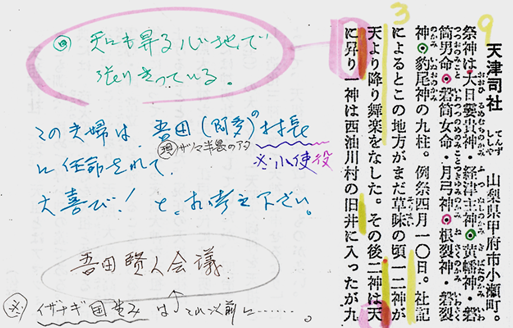 9
3
天津司社 てんずししゃ 山梨県甲府市小瀬町。
祭神は大日孁貴神・経津主神◎黄幡神・磐
筒男命◎磐筒女命・月弓神◎根裂神・磐裂
神◎豹尾神の九柱。例祭四月一〇日。社記
によるとこの地方がまだ草昧の頃一二神が
天より降り舞楽をなした。その後二神は天
に昇り一神は西油川村の旧井に入ったが九
◎ 天にも昇る心地で
張りきっている。
この夫婦は、吾田(阿多)の村長
現 サツマ半島のアタ
※小使役
に任命されて、
大喜び! と、お考え下さい。
吾田賢人会議.
※ イザナギ国生み は それ以前に……。